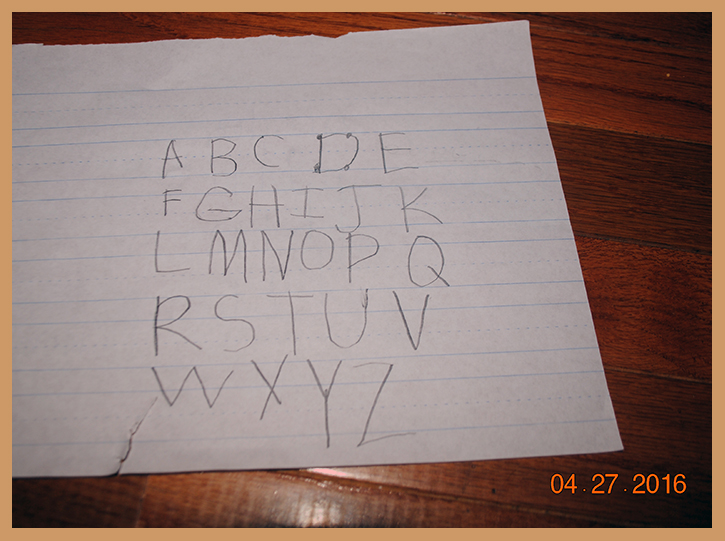 A B C D E
F G H I J K
L M N O P Q
R S T U V
W X Y Z
04.27.2016